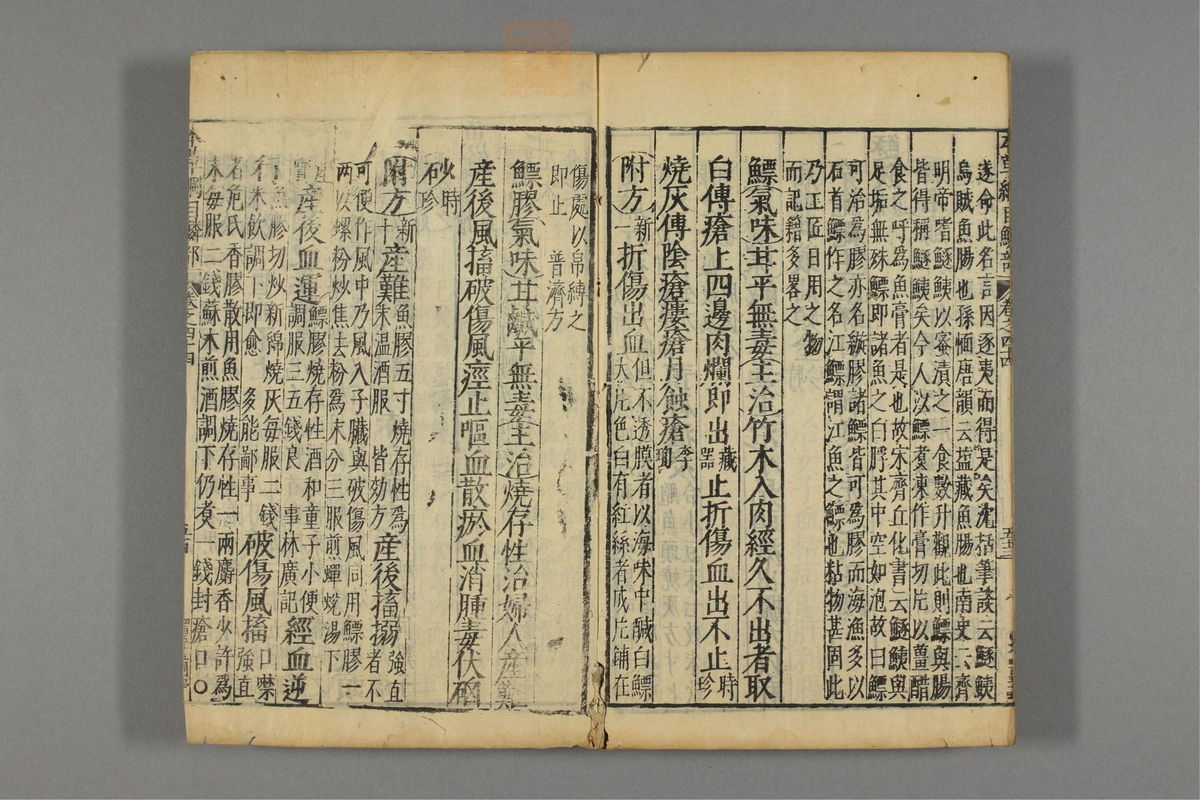 遂命此名言因逐夷而得是矣沈括筆談云鱁鮧
烏賊魚腸也孫愐唐韻云塩藏魚腸也南史云齊
明帝嗜鱁鮧以蜜漬之一食數升觀此則鰾與腸
皆得稱鱁鮧矣今人以鰾煮凍作膏切片以薑醋
食之呼爲魚膏者是也故宋齊丘化書云鱁鮧與
足垢無殊鰾即諸魚之白脬其中空如泡故曰鰾
可治爲膠亦名縼膠諸鰾皆可爲膠而海漁多以
石首鰾作之名江鰾謂江魚之鰾也粘物甚固此
乃工匠日用之物
而記籍多畧之
鰾氣味甘平無毒主治竹木入肉經久不出者取
白傅瘡上四邊肉爛即出藏器止折傷血出不止時珍
燒灰傅陰瘡瘻瘡月蝕瘡李珣
附方新一折傷出血但不透膜者以海味中鹹白鰾
大片色白有紅絲者成片鋪在
傷處以帛縛之
即止 普濟方
鰾膠氣味甘鹹平無毒主治燒存性治婦人産難
産後風搐破傷風痙止嘔血散瘀血消腫毒伏硇
砂時珍
附方新十産難魚膠五寸燒存性爲
末温酒服 皆効方産後搐搦強直
者不
可便作風中乃風入子臟與破傷風同用鰾膠一
兩以螺粉炒焦去粉爲末分三服煎蟬蛻湯下
産寶産後血運鰾膠燒存性酒和童子小便
調服三五錢良 事林廣記經血逆
行魚膠切炒新綿燒灰每服二錢
米飲調下即愈 多能鄙事破傷風搐口噤
強直
者危氏香膠散用魚膠燒存性一兩麝香少許爲
末每服二錢蘇木煎酒調下仍煮一錢封瘡口○